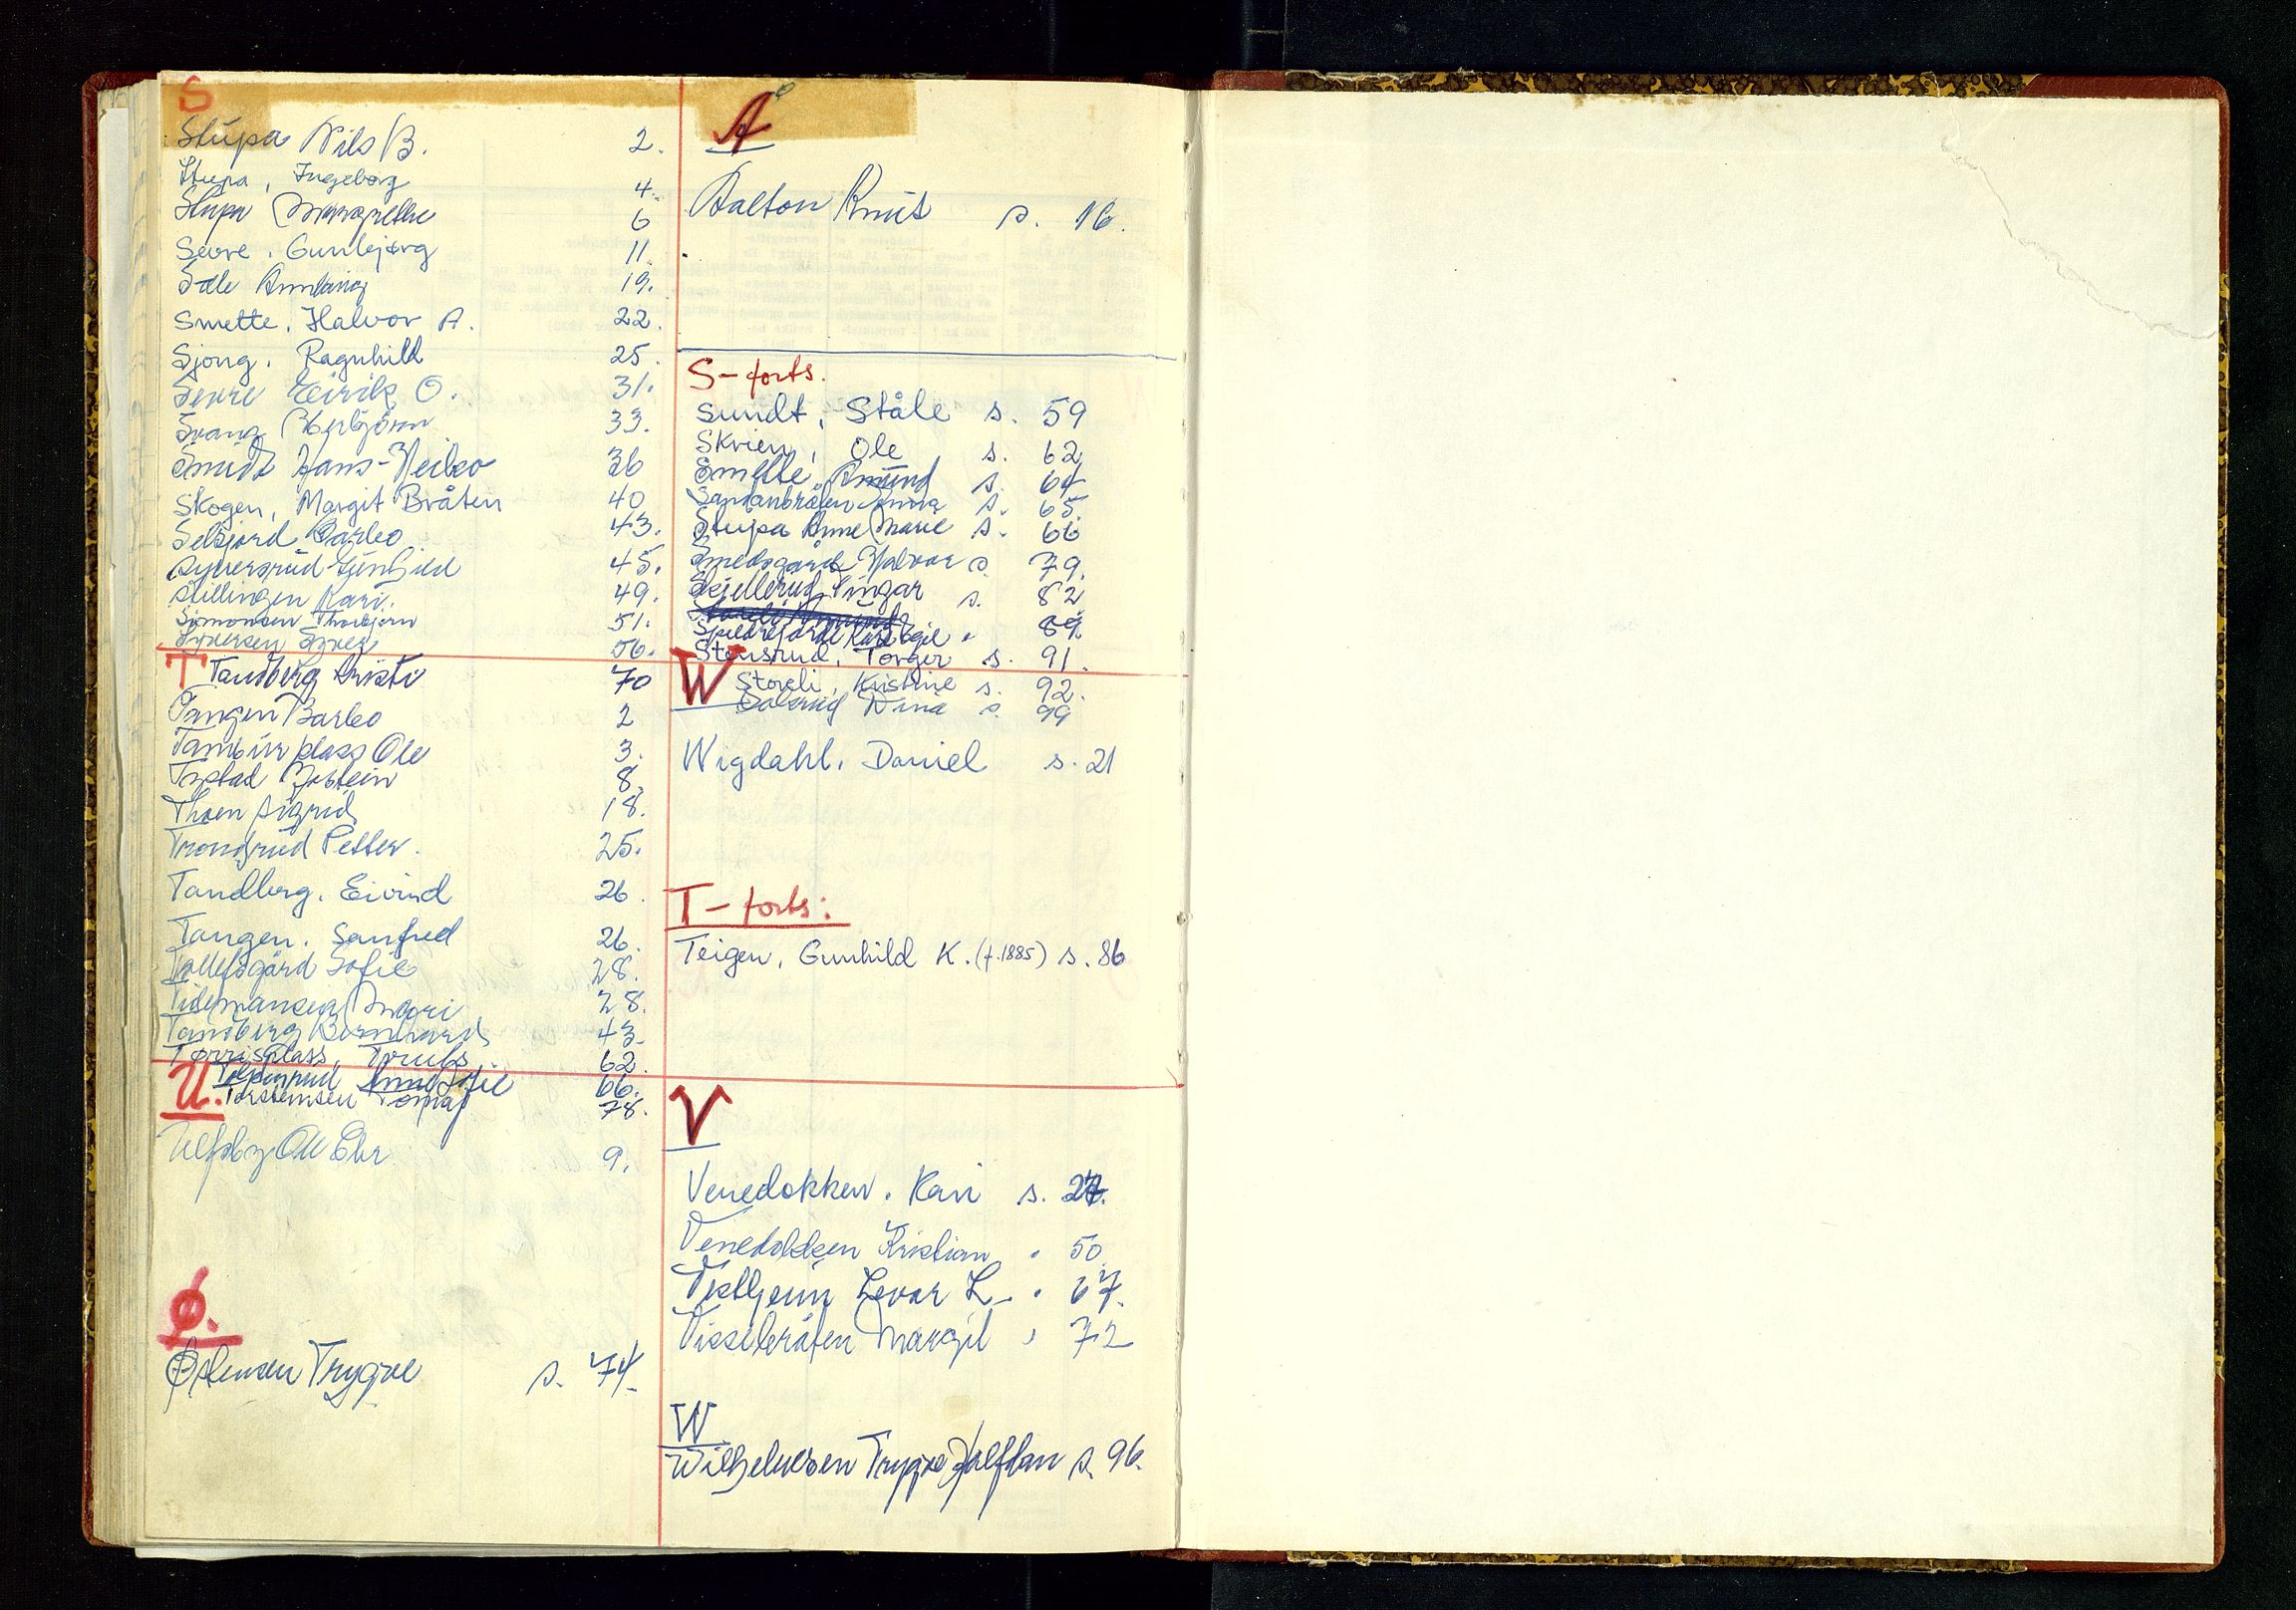 S
Stupa Nils B. 2.
Stupa, Ingeborg 4.
Stupa Margrethe 6
Sevre, Gunbjørg 11.
Sæle 19.
Smette, Halvor A. 22.
Sjong, Ragnhild 25.
Sevre Eirik O. 31.
Svang Herbjörn 33.
Smidt Hans-Heiko 36
Skogen, Margit Bråten 40
Selsjord Barbo 43.
Syversrud Gunhild 45.
Stillingen Kari. 49.
Simonsen Thorbjørn 51.
Syversen Syver 56.
T Tandberg Kristi 70
Tangen Barbo 2
Tamburplass Ole 3.
Jostein 8.
Thoen Sigrid 18.
Trondrud Petter. 25.
Tandberg, Eivind 26.
Tangen, Sanfred 26.
Tollefsgård Sofie 28.
Tidemansen Mari 28.
Tandberg Bernhard 43.
Torrisplass, Truls 62.
U. Anne Sofie 66.
Torsteinsen 78.
Ulfsby Ole Ehr 9.
Ø.
Østensen Trygve s. 74.
Å
Aalton Knut s. 16.
S- forts.
Sundt, Ståle s. 59
Skrien, Ole s. 62
Smette, Amund s. 64
Sandanbråten Anna s. 65.
Stupa Anne Marie s. 66
Smedsgård Halvor s. 79.
Skjellerud, Ingar s. 82
Karl Egil " 89.
Stensrud, Torger s. 91.
W Storeli, Kristine s. 92.
Nina s. 99
Wigdahl, Daniel s. 21
T- forts:
Teigen, Gunhild K. (f. 1885) s. 86
V
Venedokken, Kari s. 27.
Venedokken Kristian " 50
Vestheim Levor L. " 67.
Visselbråten Margit " 72
W
Wilhelmsen Trygve Halfdan s. 96.